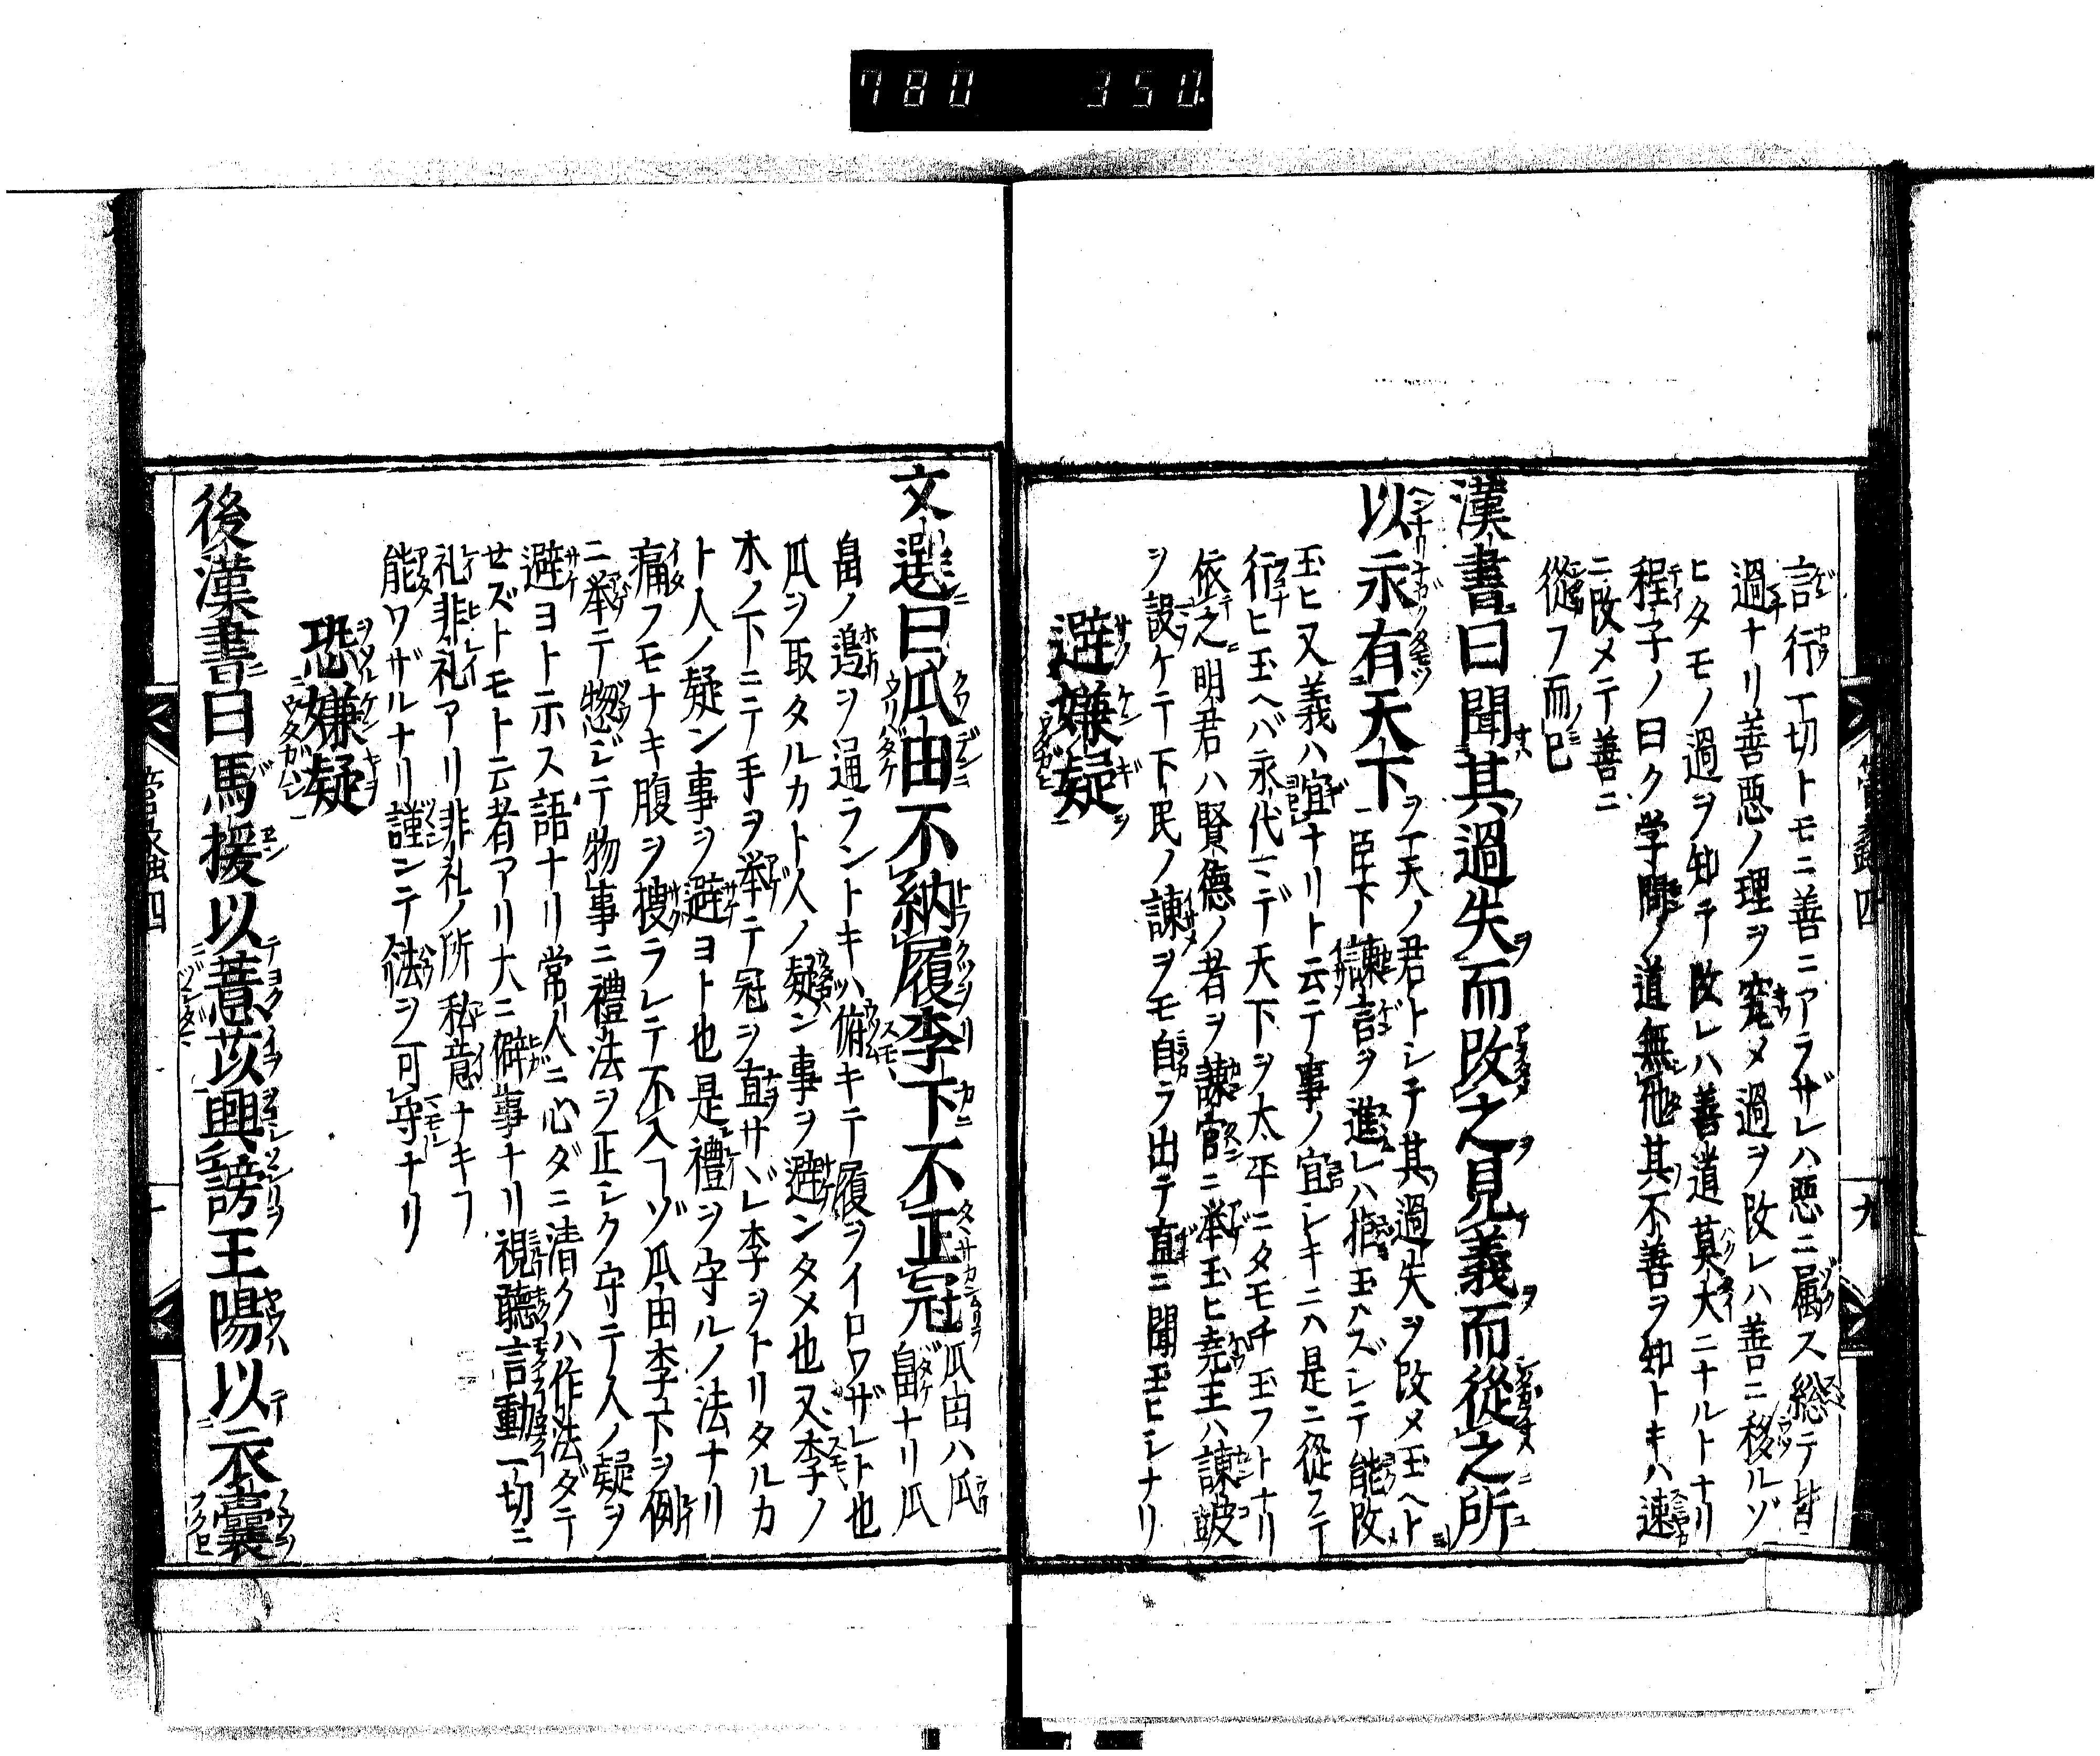 780 350.
言行一切トモニ善ニアラザレハ悪ニ属ス総テ皆
過ナリ善悪ノ理ヲ究メ過ヲ改レハ善ニ移ルゾ
ヒタモノ過ヲ知テ改レハ善道莫大ニナルトナリ
程子ノ曰ク学問ノ道無他其不善ヲ知トキハ速
ニ改メテ善ニ
從フ而已
漢書曰聞其過失而改之見義而從之所
以永有天下
一天ノ君トシテ其過失ヲ改メ玉ヘト
臣下諫言ヲ進レハ拒玉ハズシテ能改
玉ヒ又義ハ宜ナリト云テ事ノ宜シキニハ是ニ從フテ
行ヒ玉ヘバ永代マデ天下ヲ太平ニタモチ玉フトナリ
依之明君ハ賢徳ノ者ヲ諫官ニ挙玉ヒ堯王ハ諫鼓
ヲ設ケテ下民ノ諫ヲモ自ラ出テ直ニ聞玉ヒシナリ
避嫌疑
文選曰瓜田不納履李下不正冠
瓜田ハ瓜
畠ナリ瓜
畠ノ邊ヲ通ラントキハ俯キテ履ヲイロワザレト也
瓜ヲ取タルカト人ノ疑ン事ヲ避ンタメ也又李ノ
木ノ下ニテ手ヲ挙テ冠ヲ直サヾレ李ヲトリタルカ
ト人ノ疑ン事ヲ避ヨト也是禮ヲ守ルノ法ナリ
痛フモナキ腹ヲ捜ラレテ不入ヿゾ瓜田李下ヲ例
ニ挙テ惣ジテ物事ニ禮法ヲ正シク守テ人ノ疑ヲ
避ヨト示ス語ナリ常人ニ心ダニ清クハ作法ダテ
せズトモト云者アリ大ニ僻事ナリ視聽言動一切ニ
礼非礼アリ非礼ノ所私意ナキヿ
能ワザルナリ謹ンテ法ヲ可守ナリ
恐嫌疑
後漢書曰馬援以薏苡興謗王陽以衣囊